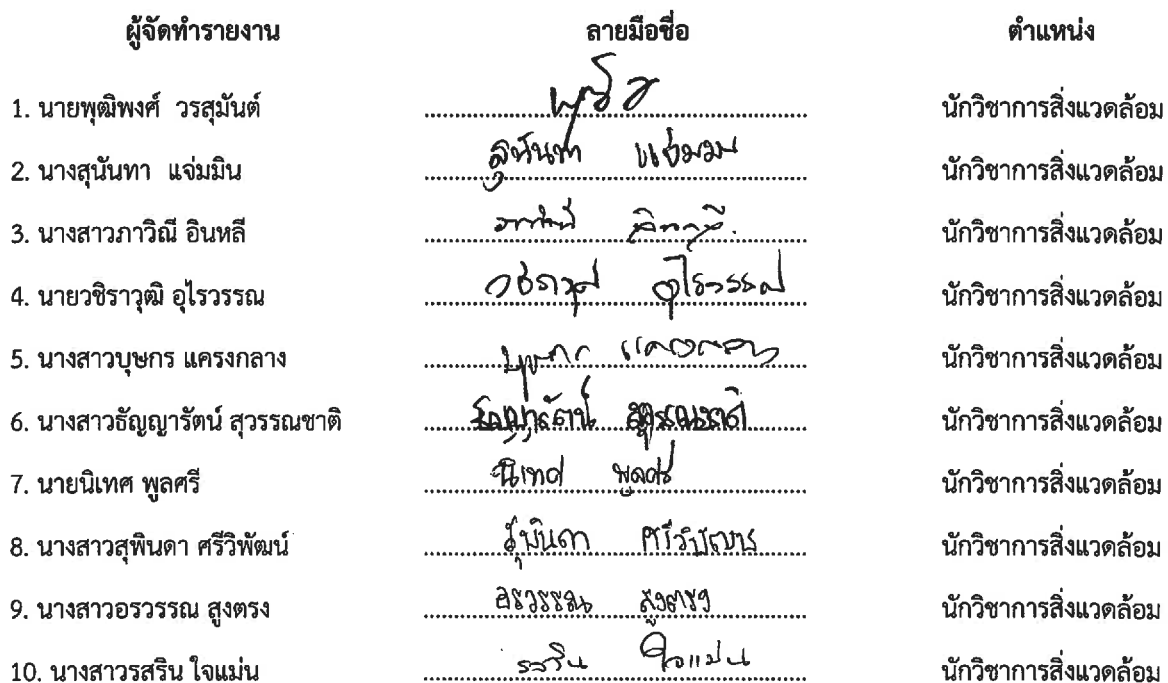 ผู้จัดทำรายงาน ลายมือชื่อ ตำแหน่ง
1. นายพุฒิพงศ์ วรสุมันต์ นักวิชาการสิ่งแวดล้อม
2. นางสุนันทา แจ่มมิน สุนันทา แจ่มมิน นักวิชาการสิ่งแวดล้อม
3. นางสาวภาวิณี อินหลี นักวิชาการสิ่งแวดล้อม
4. นายวชิราวุฒิ อุไรวรรณ วชิราวุฒิ อุไรวรรณ นักวิชาการสิ่งแวดล้อม
5. นางสาวบุษกร แครงกลาง บุษกร แครงกลาง นักวิชาการสิ่งแวดล้อม
6. นางสาวธัญญารัตน์ สุวรรณชาติ ธัญญารัตน์ สุวรรณชาติ นักวิชาการสิ่งแวดล้อม
7. นายนิเทศ พูลศรี นิเทศ พูลศรี นักวิชาการสิ่งแวดล้อม
8. นางสาวสุพินดา ศรีวิพัฒน์ สุพินดา ศรีวิพัฒน์ นักวิชาการสิ่งแวดล้อม
9. นางสาวอรวรรณ สูงตรง อรวรรณ สูงตรง นักวิชาการสิ่งแวดล้อม
10. นางสาวรสริน ใจแม่น รสริน ใจแม่น นักวิชาการสิ่งแวดล้อม